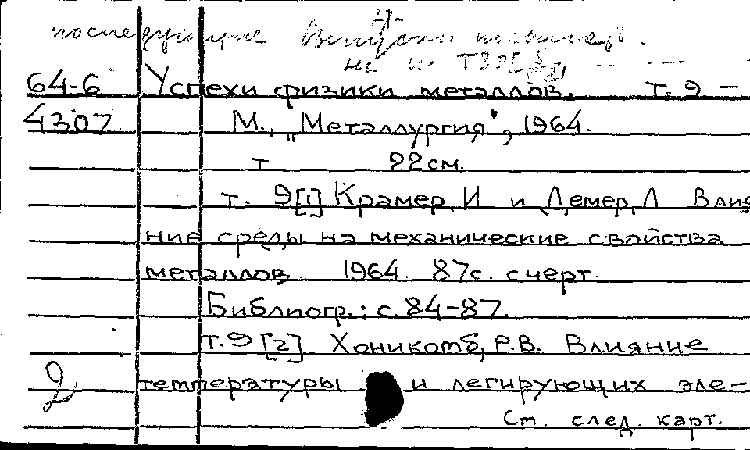 последующие Выпуски
64-6 Успехи физики металлов. Т. 9 —
4307 М., „Металлургия", 1964.
т 22см.
т. 9[1] Крамер, И и Демер, Л Влия
ние среды на механические свойства
металлов 1964. 87с. с черт.
Библиогр.: с. 84-87.
т. 9 [2] Хоникомб, Р.В. Влияние
температуры и легирующих эле-
См. след. карт.